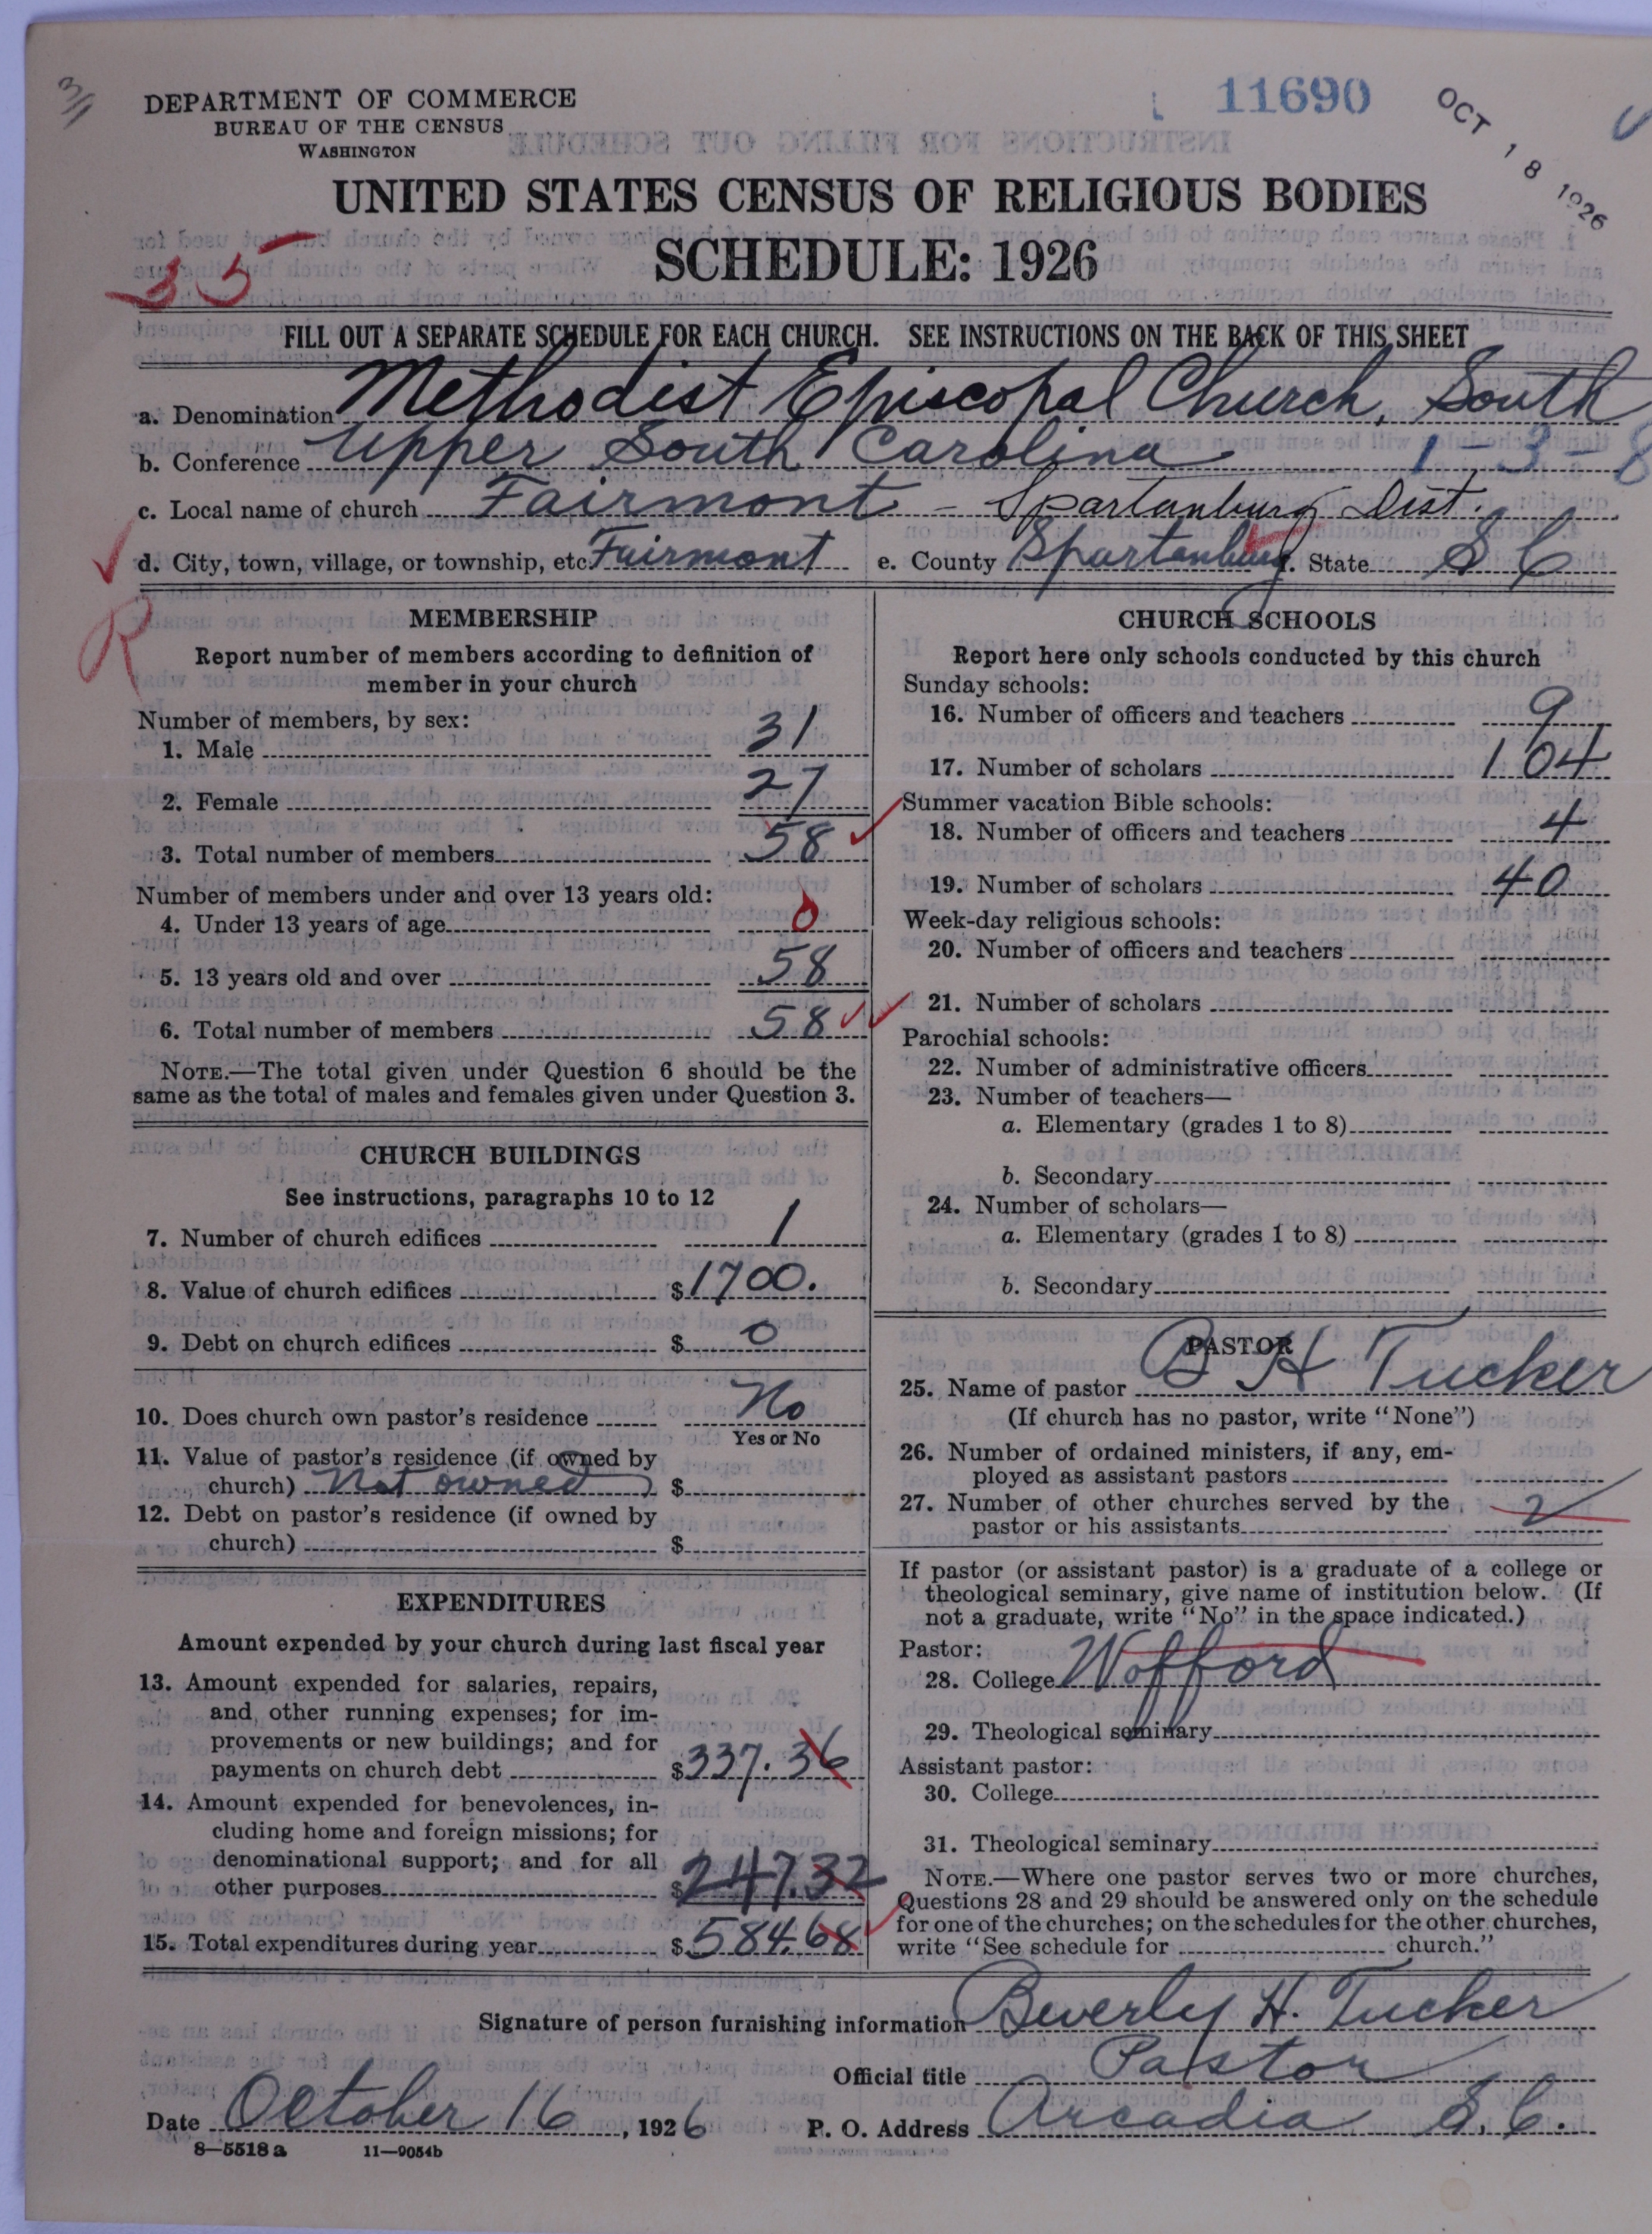 3/
DEPARTMENT OF COMMERCE
BUREAU OF THE CENSUS
WASHINGTON
11690
OCT 18 1926
UNITED STATES CENSUS OF RELIGIOUS BODIES
SCHEDULE: 1926
35
FILL OUT A SEPARATE SCHEDULE FOR EACH CHURCH. SEE INSTRUCTIONS ON THE BACK OF THIS SHEET
a. Denomination Methodist Episcopal Church, South
b. Conference Upper South Carolina 1-3-8
c. Local name of church Fairmont - Spartanburg Dist.
d. City, town, village, or township, etc. Fairmont e. County Spartanburg f. State S C
R
MEMBERSHIP
Report number of members according to definition of
member in your church
Number of members, by sex:
1. Male 31
2. Female 27
3. Total number of members 58
Number of members under and over 13 years old:
4. Under 13 years of age 0
5. 13 years old and over 58
6. Total number of members 58
NOTE.—The total given under Question 6 should be the
same as the total of males and females given under Question 3.
CHURCH BUILDINGS
See instructions, paragraphs 10 to 12
7. Number of church edifices 1
8. Value of church edifices $1700.
9. Debt on church edifices $ 0
10. Does church own pastor's residence No
Yes or No
11. Value of pastor's residence (if owned by
church) Not owned $
12. Debt on pastor's residence (if owned by
church) $
EXPENDITURES
Amount expended by your church during last fiscal year
13. Amount expended for salaries, repairs,
and other running expenses; for im-
provements or new buildings; and for
payments on church debt $337.36
14. Amount expended for benevolences, in-
cluding home and foreign missions; for
denominational support; and for all
other purposes $247.32
15. Total expenditures during year $584.68
CHURCH SCHOOLS
Report here only schools conducted by this church
Sunday schools:
16. Number of officers and teachers 9
17. Number of scholars 104
Summer vacation Bible schools:
18. Number of officers and teachers 4
19. Number of scholars 40
Week-day religious schools:
20. Number of officers and teachers
21. Number of scholars
Parochial schools:
22. Number of administrative officers
23. Number of teachers—
a. Elementary (grades 1 to 8)
b. Secondary
24. Number of scholars—
a. Elementary (grades 1 to 8)
b. Secondary
PASTOR
25. Name of pastor B H Tucker
(If church has no pastor, write "None")
26. Number of ordained ministers, if any, em-
ployed as assistant pastors
27. Number of other churches served by the
pastor or his assistants 2
If pastor (or assistant pastor) is a graduate of a college or
theological seminary, give name of institution below. (If
not a graduate, write "No" in the space indicated.)
Pastor:
28. College Wofford
29. Theological seminary
Assistant pastor:
30. College
31. Theological seminary
NOTE.—Where one pastor serves two or more churches,
Questions 28 and 29 should be answered only on the schedule
for one of the churches; on the schedules for the other churches,
write "See schedule for church."
Signature of person furnishing information Beverly H. Tucker
Official title Pastor
Date October 16, 1926 P. O. Address Arcadia S. C.
8—5518 a 11—9054b